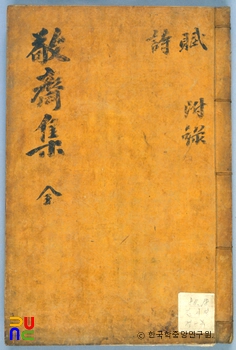 賦
附錄
詩
敬齋集 全
ⓒ 한국학중앙연구원